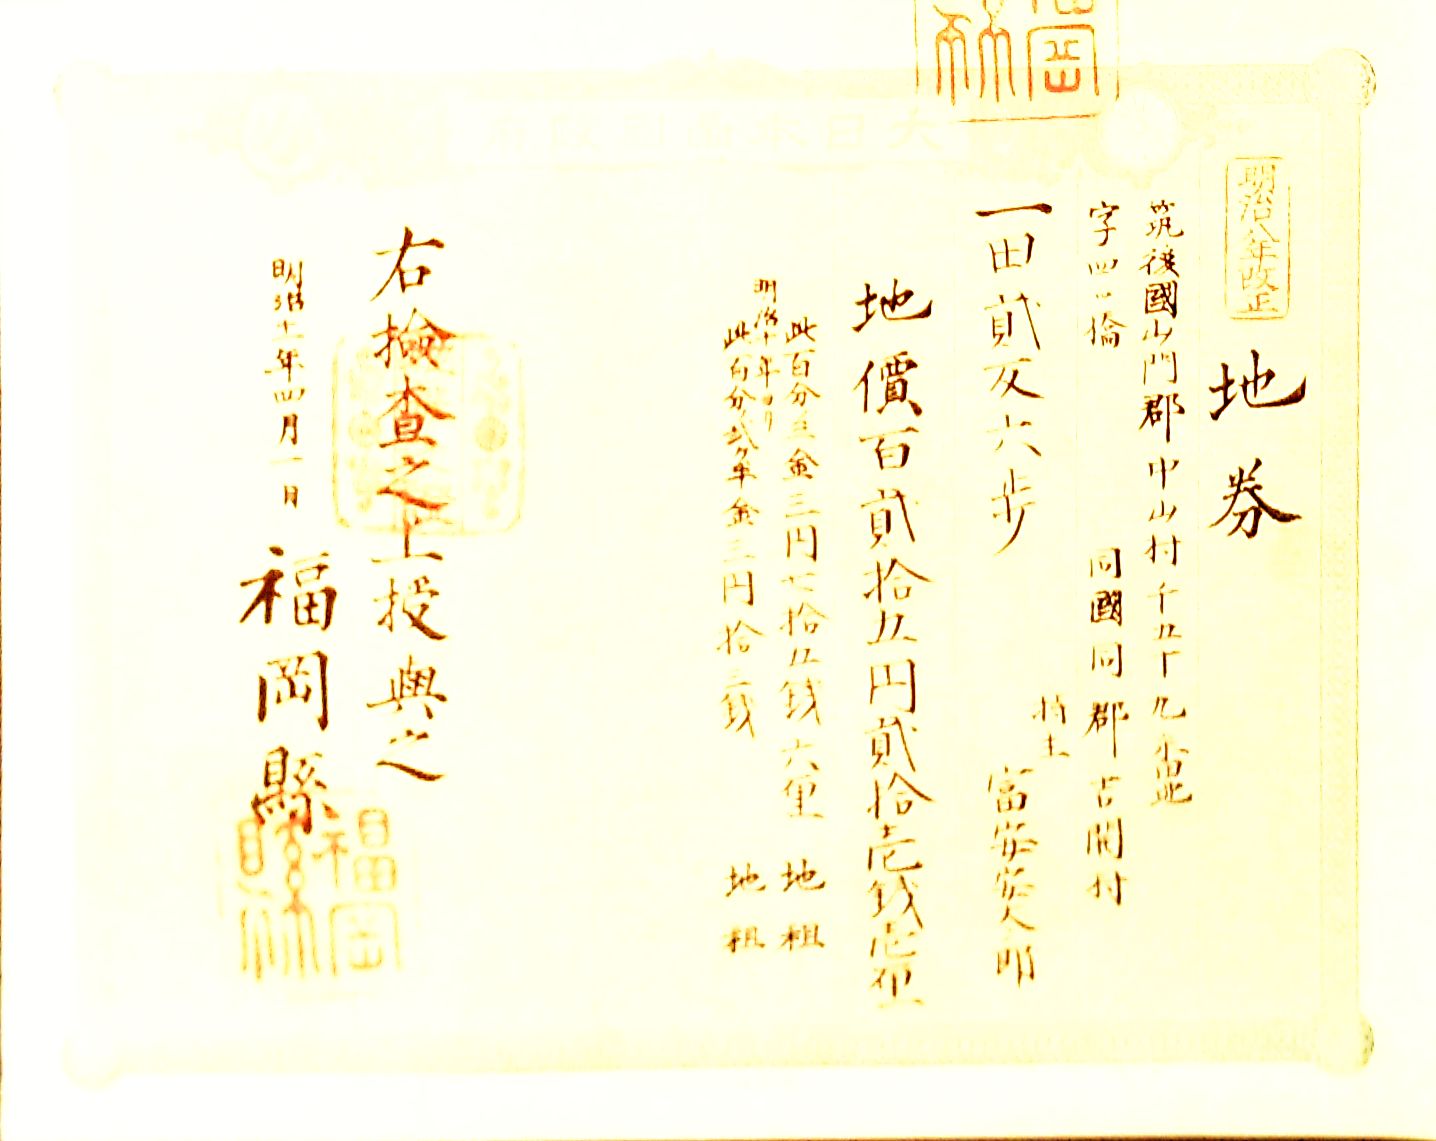 大日本帝國政府
明治八年改正
地券
筑後國山門郡中山村千五十九番
字四ツ橋 同國同郡吉開村
持主
一田貳反六歩 富安安太郎
地價百貳拾五円貳拾壱銭壱厘
此百分ノ三金三円七拾五銭六厘 地租
明治十年ヨリ
此百分ノ貳ケ半金三円拾三銭 地租
右檢査之上授與之
明治十一年四月一日 福岡縣
福岡縣